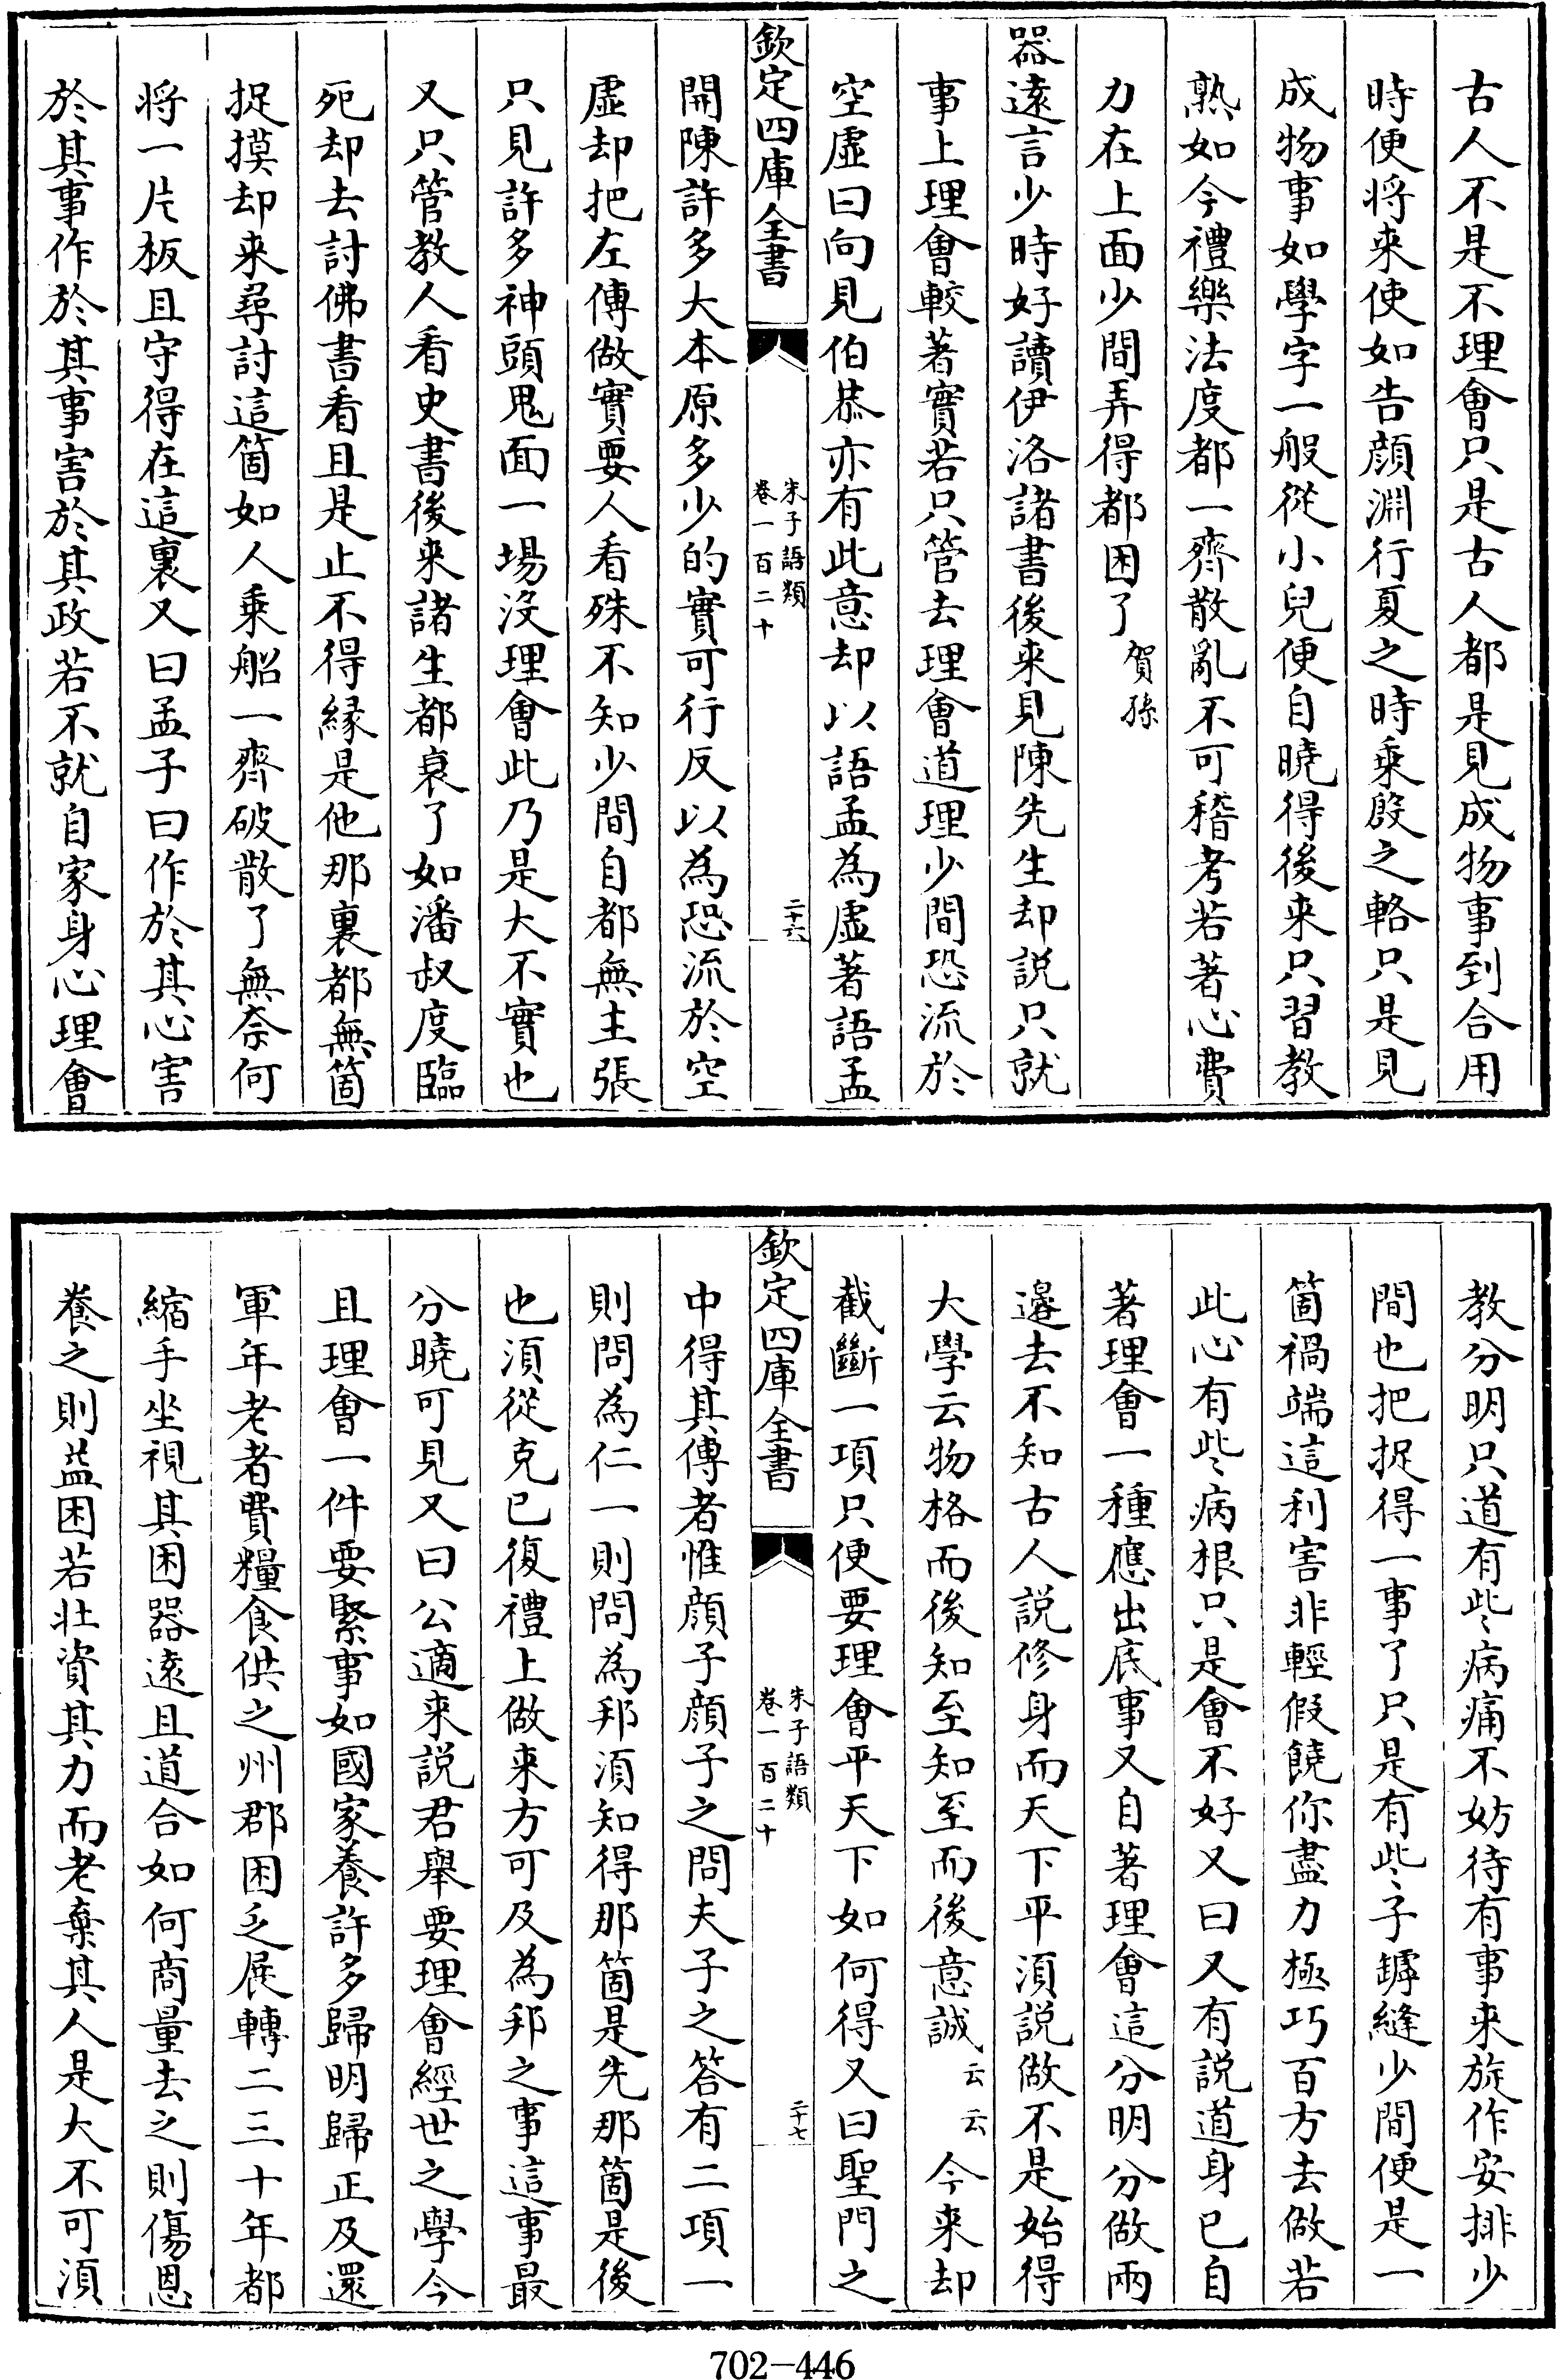 古人不是不理會只是古人都是見成物事到合用
時便将来使如告顔淵行夏之時乘殷之輅只是見
成物事如學字一般從小兒便自曉得後来只習教
熟如今禮樂法度都一齊散亂不可稽考若著心費
力在上面少間弄得都困了賀孫
器遠言少時好讀伊洛諸書後来見陳先生却説只就
事上理會較著實若只管去理會道理少間恐流於
空虛曰向見伯恭亦有此意却以語孟為虛著語孟
欽定四庫全書
朱子語類
卷一百二十
二十六
開陳許多大本原多少的實可行反以為恐流於空
虛却把左傳做實要人看殊不知少間自都無主張
只見許多神頭鬼面一場沒理會此乃是大不實也
又只管教人看史書後来諸生都衰了如潘叔度臨
死却去討佛書看且是止不得緣是他那裏都無箇
捉摸却来尋討這箇如人乘船一齊破散了無奈何
将一片板且守得在這裏又曰孟子曰作於其心害
於其事作於其事害於其政若不就自家身心理會
教分明只道有些病痛不妨待有事来旋作安排少
間也把捉得一事了只是有些子罅縫少間便是一
箇禍端這利害非輕假饒你盡力極巧百方去做若
此心有些病根只是會不好又曰又有説道身已自
著理會一種應出底事又自著理會這分明分做兩
邊去不知古人説修身而天下平須説做不是始得
大學云物格而後知至知至而後意誠云云今来却
截斷一項只便要理會平天下如何得又曰聖門之
欽定四庫全書
朱子語類
卷一百二十
二十七
中得其傳者惟顔子顔子之問夫子之答有二項一
則問為仁一則問為邦須知得那箇是先那箇是後
也須從克已復禮上做来方可及為邦之事這事最
分曉可見又曰公適来説君舉要理會經世之學今
且理會一件要緊事如國家養許多歸明歸正及還
軍年老者費糧食供之州郡困乏展轉二三十年都
縮手坐視其困器遠且道合如何商量去之則傷恩
養之則益困若壯資其力而老棄其人是大不可須
702-446